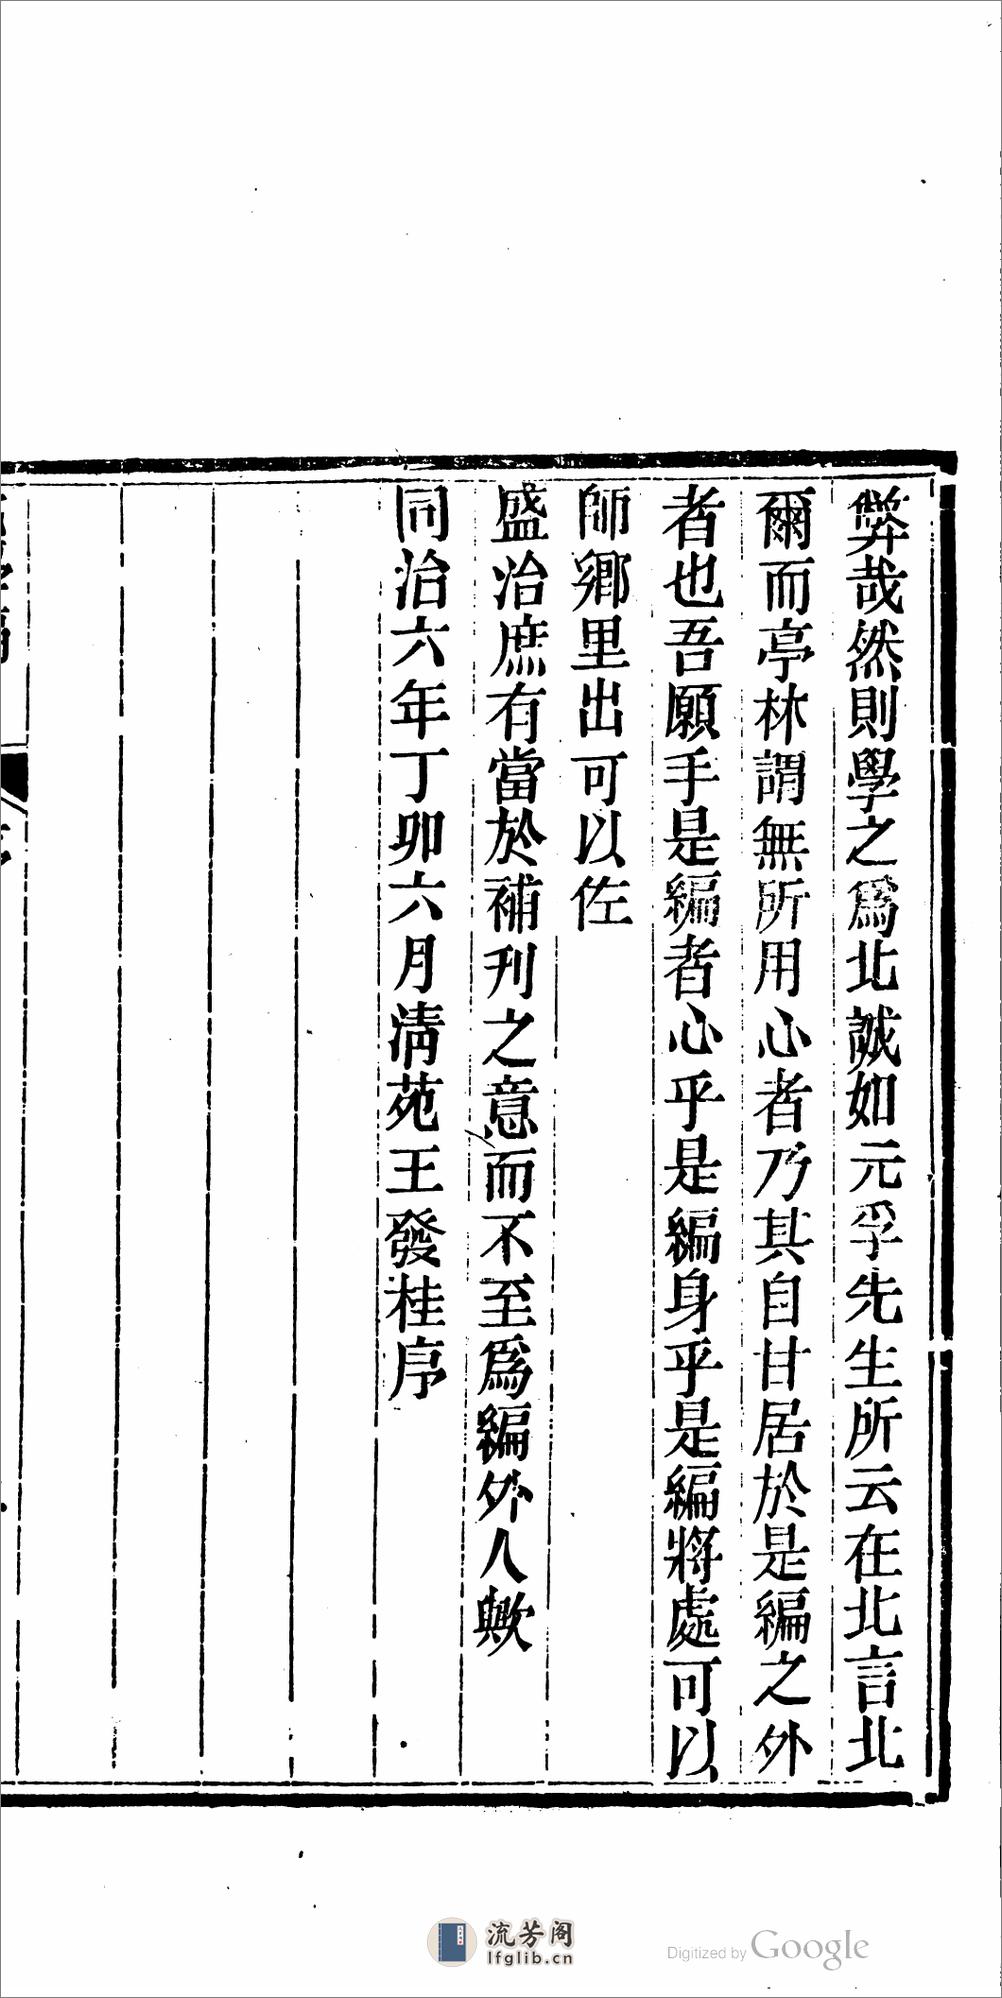 弊哉然則學之爲北誠如元孚先生所云在北言北
爾而亭林謂無所用心者乃其自甘居於是編之外
者也吾願手是編者心乎是編身乎是編將處可以
師鄉里出可以佐
盛治庶有當於補刊之意而不至爲編外人歟
同治六年丁卯六月清苑王發桂序
流芳阁
lfglib.cn
Digitized by Google